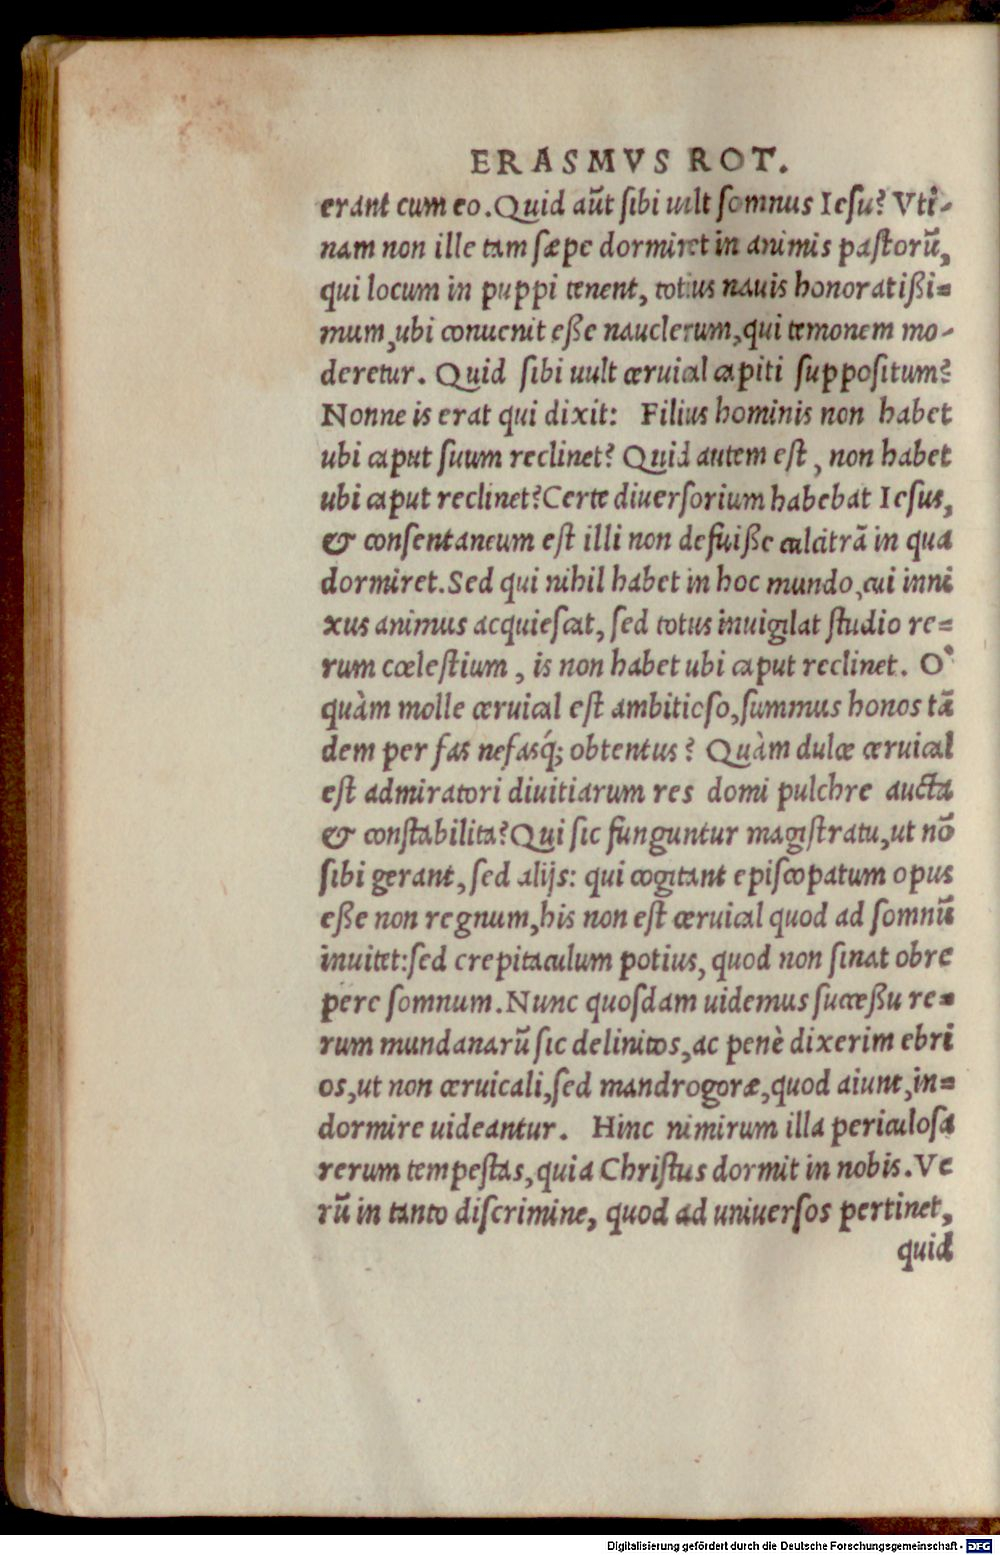 ERASMVS ROT.
erant cum eo. Quid aūt sibi uult somnus Iesu? Vti-
nam non ille tam sæpe dormiret in animis pastorū,
qui locum in puppi tenent, totius nauis honoratißi=
mum, ubi conuenit eße nauclerum, qui temonem mo-
deretur. Quid sibi uult ceruical capiti suppositum?
Nonne is erat qui dixit: Filius hominis non habet
ubi caput suum reclinet? Quid autem est, non habet
ubi caput reclinet? Certe diuersorium habebat Iesus,
& consentaneum est illi non defuiße culcitrā in qua
dormiret. Sed qui nihil habet in hoc mundo, cui inni
xus animus acquiescat, sed totus inuigilat studio re=
rum cœlestium, is non habet ubi caput reclinet. Ò
quàm molle ceruical est ambitioso, summus honos tā
dem per fas nefasq́; obtentus? Quàm dulce ceruical
est admiratori diuitiarum res domi pulchre aucta
& constabilita? Qui sic funguntur magistratu, ut nō
sibi gerant, sed alijs: qui cogitant episcopatum opus
eße non regnum, his non est ceruical quod ad somnū
inuitet: sed crepitaculum potius, quod non sinat obre
pere somnum. Nunc quosdam uidemus succeßu re=
rum mundanarū sic delinitos, ac penè dixerim ebri
os, ut non ceruicali, sed mandrogoræ, quod aiunt, in=
dormire uideantur. Hinc nimirum illa periculosa
rerum tempestas, quia Christus dormit in nobis. Ve
rū in tanto discrimine, quod ad uniuersos pertinet,
quid
Digitalisierung gefördert durch die Deutsche Forschungsgemeinschaft - DFG